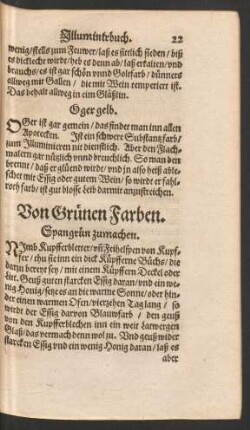 Illuminirbuch. 22
wenig/stells zum Feuwer/laß es sittlich sieden/biß
es dicklecht wirdt/heb es denn ab/laß erkalten/vnd
brauchs/es ist gar schön vund Goltfarb/dünners
allweg mit Gallen/die mit Wein temperiert ist.
Das behalt allweg in eim Gläßlin.
Oger gelb.
OGer ist gar gemein/das findet man inn allen
Apotecken. Ist ein schwere Substantz farb/
zum Illuminieren nit dienstlich. Aber den Flach-
malern gar nützlich vnnd breuchlich. So man den
brennt/daß er glüend wirdt/vnd jn also heiß able-
schet mit Essig oder gutem Wein/so wirdt er fahl-
roth farb/ist gut blosse beiß darmit anzustreichen.
Von Grünen Farben.
Spangrün zumachen.
NImb Kupfferbletter/vñ Feihelspen von Kupf-
fer/thu sie inn ein dick Küpfferne Büchs/die
darzu bereyt sey/mit einem Küpffern Deckel oder
on. Geuß guten starcken Essig daran/vnd ein we-
nig Honig/setz es an die warme Sonne/oder hin-
der einen warmen Ofen/vierzehen Tag lang/so
wirdt der Essig darvon Blauwfarb/den geuß
von den Kupfferblechen inn ein weit härwergen
Glaß/das vermach denn wol zu. Vnd geuß wider
starcken Essig vnd ein wenig Honig daran/laß es
aber